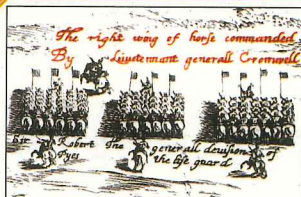 The right wing of horse commanded
By Lieutennant generall Cromwell
Sir Robert
Pyes
The generall devision of
the life guard